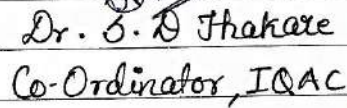 Dr. S. D Thakare
Co-Ordinator, IQAC